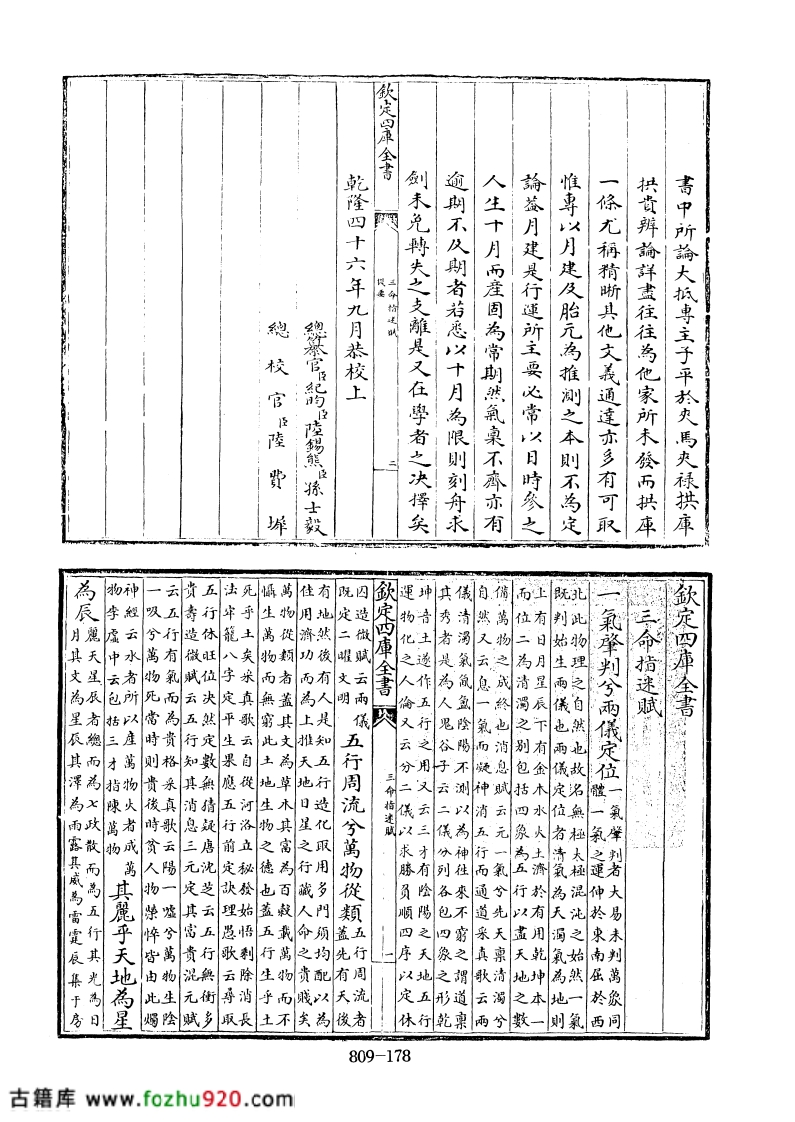 書中所論大抵專主子平於夾馬夾祿拱庫
拱貴辨論詳盡往往為他家所未發而拱庫
一條尤稱精晰其他文義通達亦多有可取
惟專以月建及胎元為推測之本則不為定
論蓋月建是行運所主要必常以日時參之
人生十月而產固為常期然氣稟不齊亦有
逾期不及期者若悉以十月為限則刻舟求
劍未免轉失之支離是又在學者之決擇矣
欽定四庫全書
三命指迷賦
提要
二
乾隆四十六年九月恭校上
總纂官臣紀昀臣陸錫熊臣孫士毅
總校官臣陸費墀
欽定四庫全書
三命指迷賦
一氣肇判兮兩儀定位
一氣肇判者大易未判萬象同
體一氣之運伸於東南屈於西
北此物理之自然也故名無極太極混沌之始然一氣
既判始生兩儀也兩儀定位者清氣為天濁氣為地則
上有日月星辰下有金木水火土濟於有用乾坤本一
而位二為清濁之別包括四象為五行以盡天地之數
備萬物之成終也消息賦云元一氣兮先天稟清濁兮
自然又云息一氣而凝神消五行而通道采真歌云兩
儀清濁氣氤氳陰陽不測以為神往來不窮之謂道稟
其秀者是為人鬼谷子云二儀分列各包四象之形乾
坤音土遂作五行之用又云三才有陰陽之天地五行
運物化之人倫又云分二儀以求勝負順四序以定休
囚造微賦云兩儀
既定二曜文明
五行周流兮萬物從類
五行周流者
蓋先有天後
欽定四庫全書
三命指迷賦
一
有地然後有人是知五行造化取用多門須均配以為
住用濟功而為上推天地日星之行識人命之貴賤矣
萬物從類者蓋其文為草木其富為百穀載萬物而不
懾生萬物而無窮此土地生物之德也蓋五行生乎土
死乎土矣采真歌云自從河洛立秘發始悟剩除消長
法牢籠八字定平生果應五行前定訣理愚歌云尋取
五行休旺位決然定數無猜疑唐沈芝云五行無術多
貴壽造微賦云五行知其消息三元定其富貴混元賦
云五行有氣而為貴格采真歌云陽一噓兮萬物生陰
一吸兮萬物死當時則貴後時貧人物榮悴皆由此燭
神經云水者所以產萬物火者成萬
物李虛中云包括三才指陳萬物
其麗乎天地為星
為辰
麗天星辰者總而為七政散而為五行其光為日
月其文為星辰其澤為雨露其威為雷霆辰集于房
809-178
古籍库 www.fozhu920.com